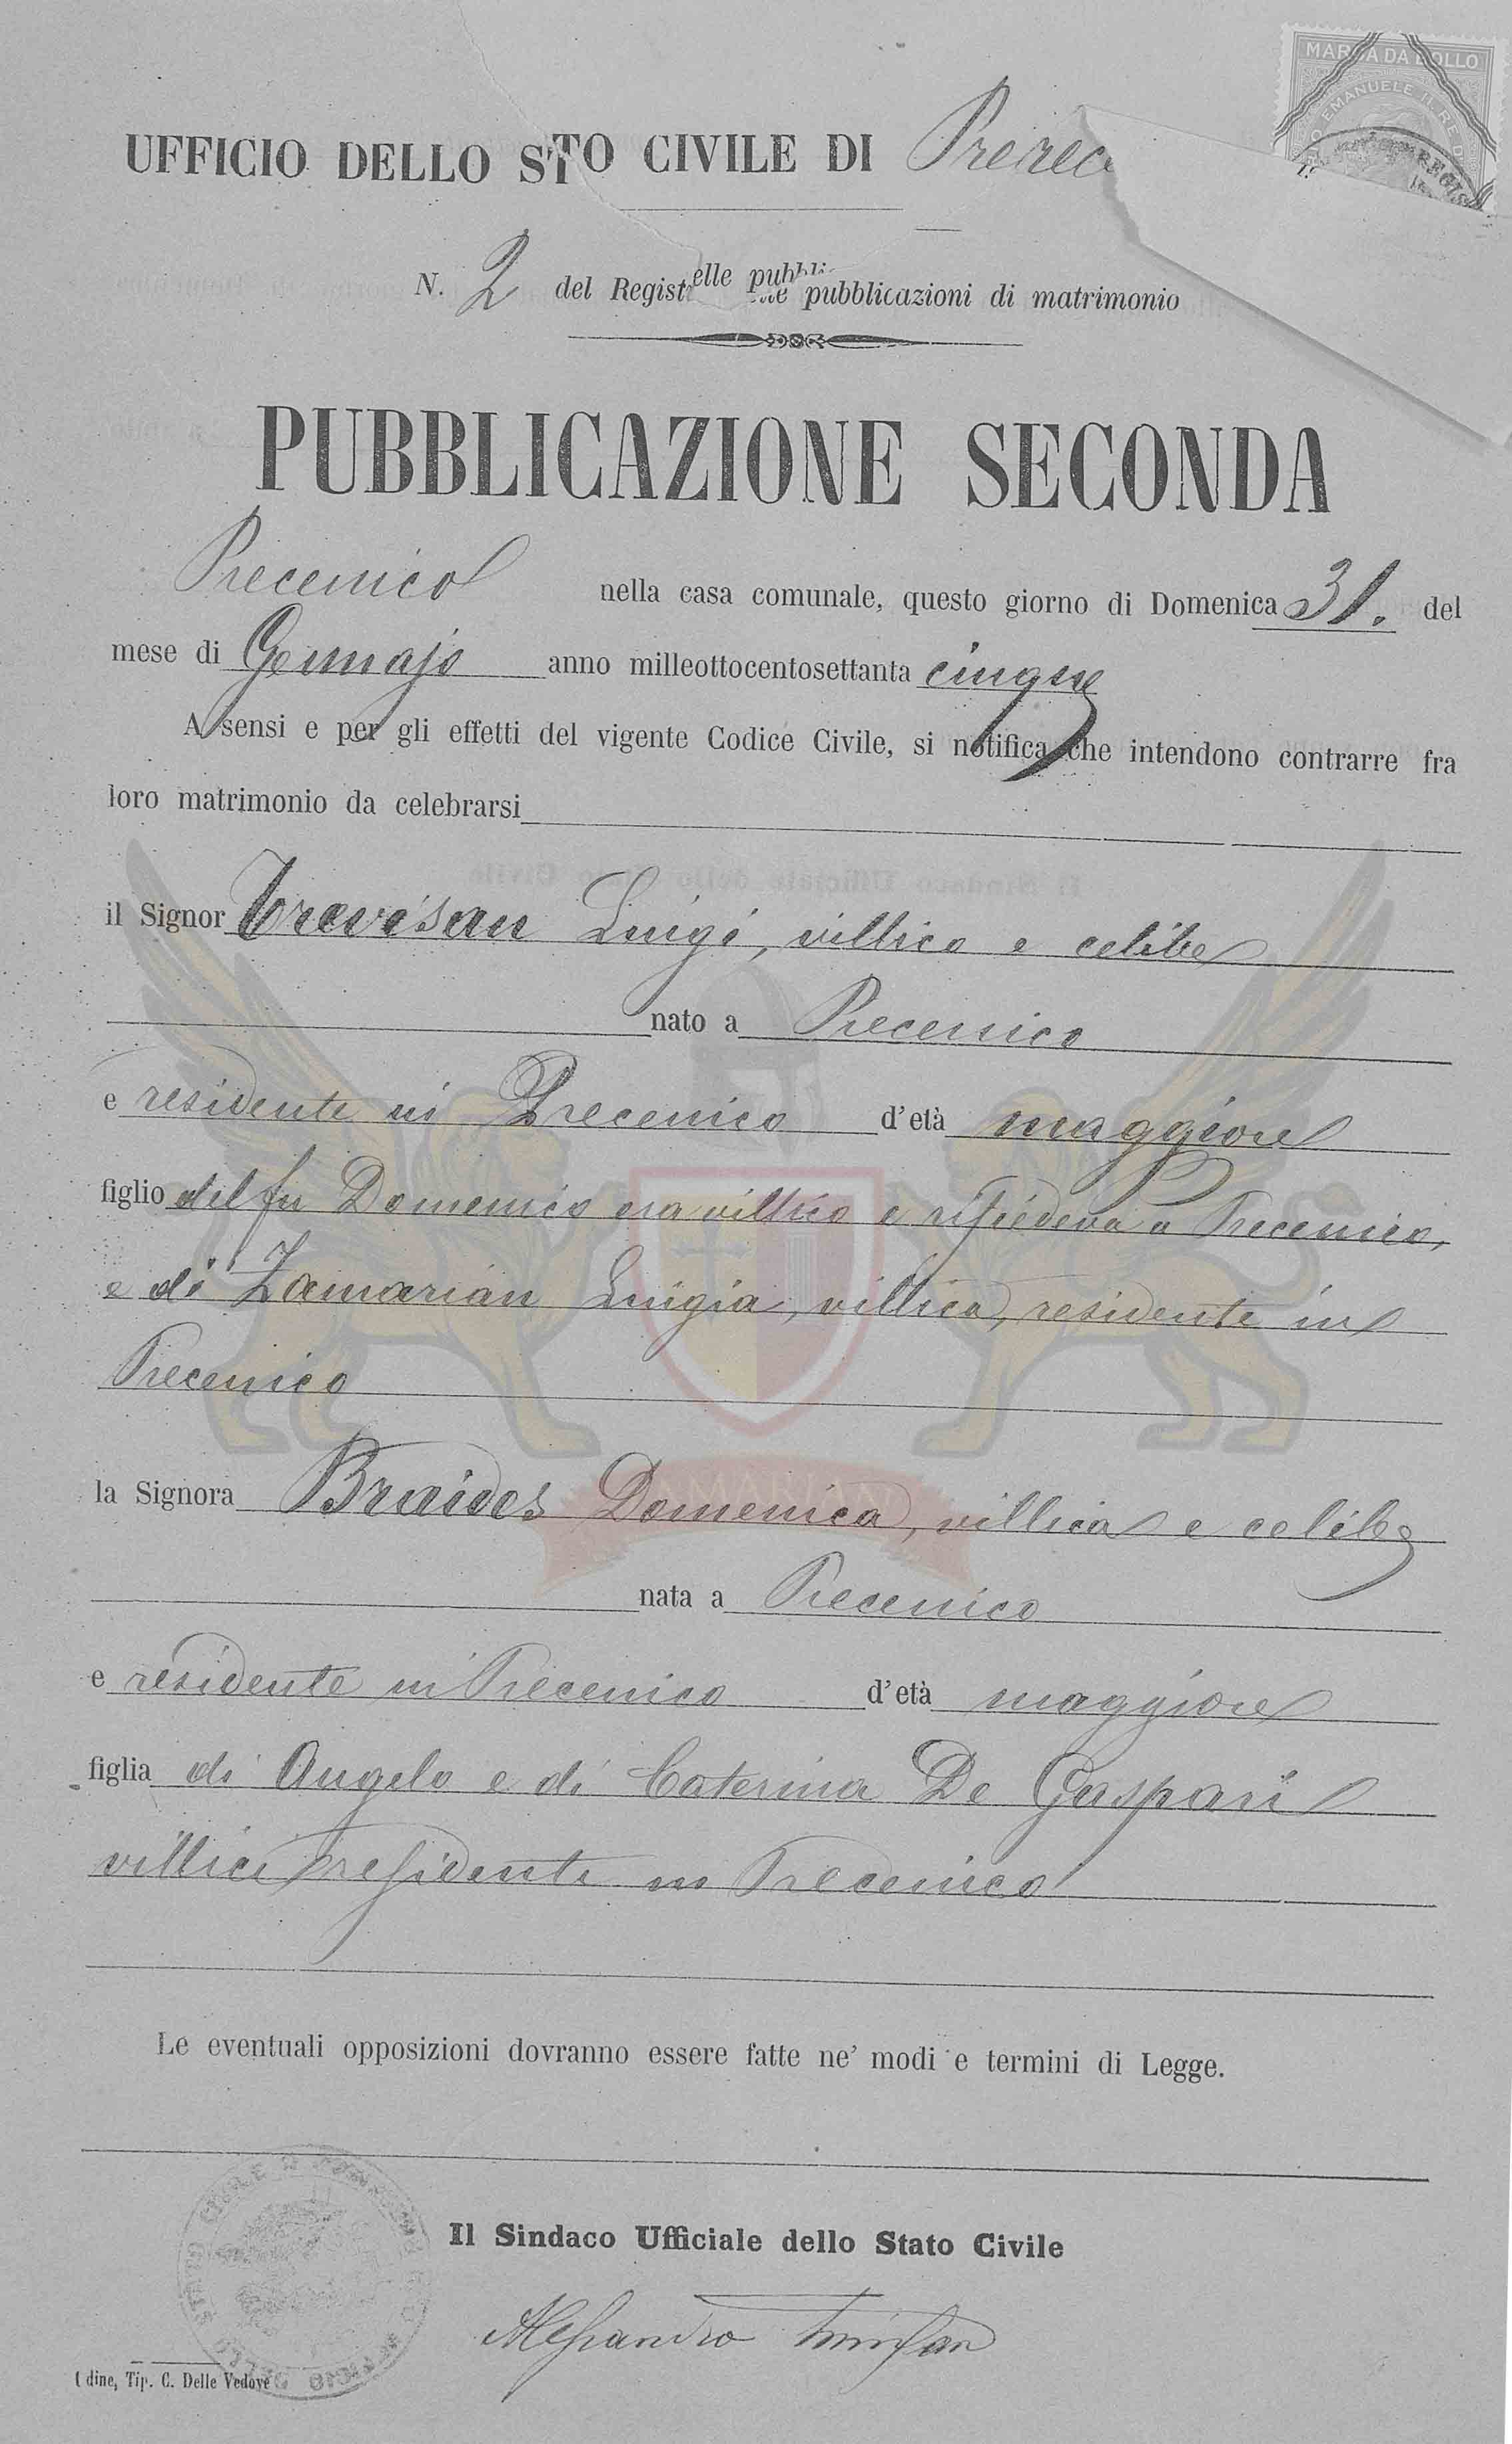 MARCA DA BOLLO
EMANUELE II RE D
UFFICIO DELLO STO CIVILE DI Prerec
N. 2 del Registelle pubbli pubblicazioni di matrimonio
PUBBLICAZIONE SECONDA
Precenico nella casa comunale, questo giorno di Domenica 31. del
mese di Gennajo anno milleottocentosettanta cinque
A sensi e per gli effetti del vigente Codice Civile, si notifica che intendono contrarre fra
loro matrimonio da celebrarsi
il Signor Trevisan Luigi, villico e celibe
nato a Precenico
e residente in Precenico d'età maggiore
figlio del fu Domenico era villico e risiedeva a Precenico,
e di Zamarian Luigia, villica, residente in
Precenico
la Signora Braides Domenica, villica e celibe
nata a Precenico
e residente in Precenico d'età maggiore
figlia di Angelo e di Caterina De Gaspari
villici residenti in Precenico
Le eventuali opposizioni dovranno essere fatte ne' modi e termini di Legge.
Il Sindaco Ufficiale dello Stato Civile
Alessandro
Udine, Tip. C. Delle Vedove